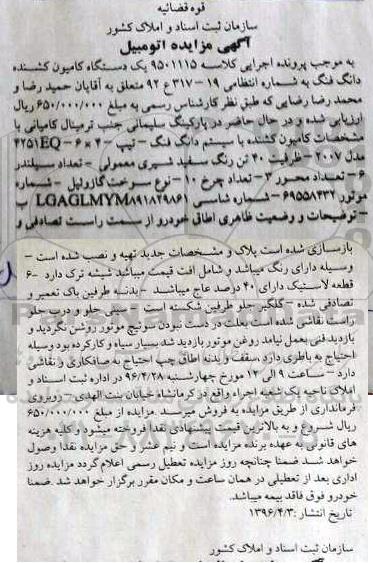 قوه قضائیه
سازمان ثبت اسناد و املاک کشور
آگهی مزایده اتومبیل
به موجب پرونده اجرایی کلاسه ۹۵۰۱۱۱۵ یک دستگاه کامیون کشنده
دانگ فنگ به شماره انتظامی ۱۹ - ۳۱۷ع ۹۲ متعلق به آقایان حمید رضا و
محمد رضا رضایی که طبق نظر کارشناس رسمی به مبلغ ۶۵۰/۰۰۰/۰۰۰ ریال
ارزیابی شده و در حال حاضر در پارکینگ سلیمانی جنب ترمینال کامیانی با
مشخصات کامیون کشنده با سیستم دانگ فنگ - تیپ ۴×۶ - ۴۲۵۱EQ
مدل ۲۰۰۷ - ظرفیت ۴۰ تن رنگ سفید شیری معمولی - تعداد سیلندر
۶ - تعداد محور ۳ - تعداد چرخ ۱۰ - نوع سوخت گازوئیل - شماره
موتور ۶۹۵۵۸۴۳۲ - شماره شاسی LGAGLMYM۸۹۱۸۲۹۸۶۱ ب
- توضیحات و وضعیت ظاهری اطاق خودرو از سمت راست تصادفی و
بازسازی شده است پلاک و مشخصات جدید تهیه و نصب شده است -
وسیله دارای رنگ میباشد و شامل افت قیمت میباشد شیشه ترک دارد - ۶
قطعه لاستیک دارای ۴۰ درصد عاج میباشد - بدنه طرفین باک تعمیر و
تصادفی شده - گلگیر جلو طرفین شکسته است - سینی جلو و درب جلو
راست نقاشی شده است بعلت در دست نبودن سوئیچ موتور روشن نگردید و
بازدید فنی بعمل نیامد روغن موتور بازدید شد بسیار سیاه و کارکرده بود وسیله
احتیاج به باطری دارد، سقف و بدنه اطاق چپ احتیاج به صافکاری و نقاشی
دارد - ساعت ۹ الی ۱۲ مورخ چهارشنبه ۹۶/۴/۲۸ در اداره ثبت اسناد و
املاک ناحیه یک شعبه اجراء واقع در کرمانشاه خیابان بنت الهدی - روبروی
فرمانداری از طریق مزایده به فروش میرسد. مزایده از مبلغ ۶۵۰/۰۰۰/۰۰۰
ریال شروع و به بالاترین قیمت پیشنهادی نقدا فروخته میشود و کلیه هزینه
های قانونی به عهده برنده مزایده است و نیم عشر و حق مزایده نقدا وصول
خواهد شد ضمنا چنانچه روز مزایده تعطیل رسمی اعلام گردد مزایده روز
اداری بعد از تعطیلی در همان ساعت و مکان مقرر برگزار خواهد شد. ضمنا
خودرو فوق فاقد بیمه میباشد.
تاریخ انتشار: ۱۳۹۶/۴/۳
سازمان ثبت اسناد و املاک کشور